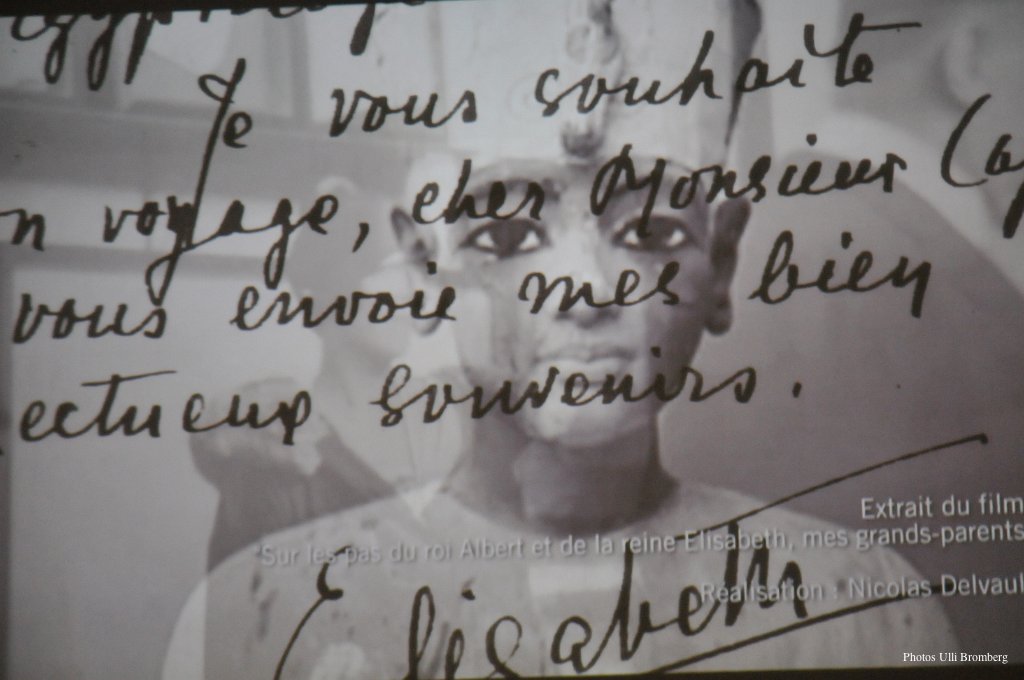 Je vous souhaite
n voyage, cher Monsieur Cap
vous envoie mes bien
ectueux souvenirs.
Elisabeth
Extrait du film
"Sur les pas du roi Albert et de la reine Elisabeth, mes grands-parents
Réalisation : Nicolas Delvaul
Photos Ulli Bromberg